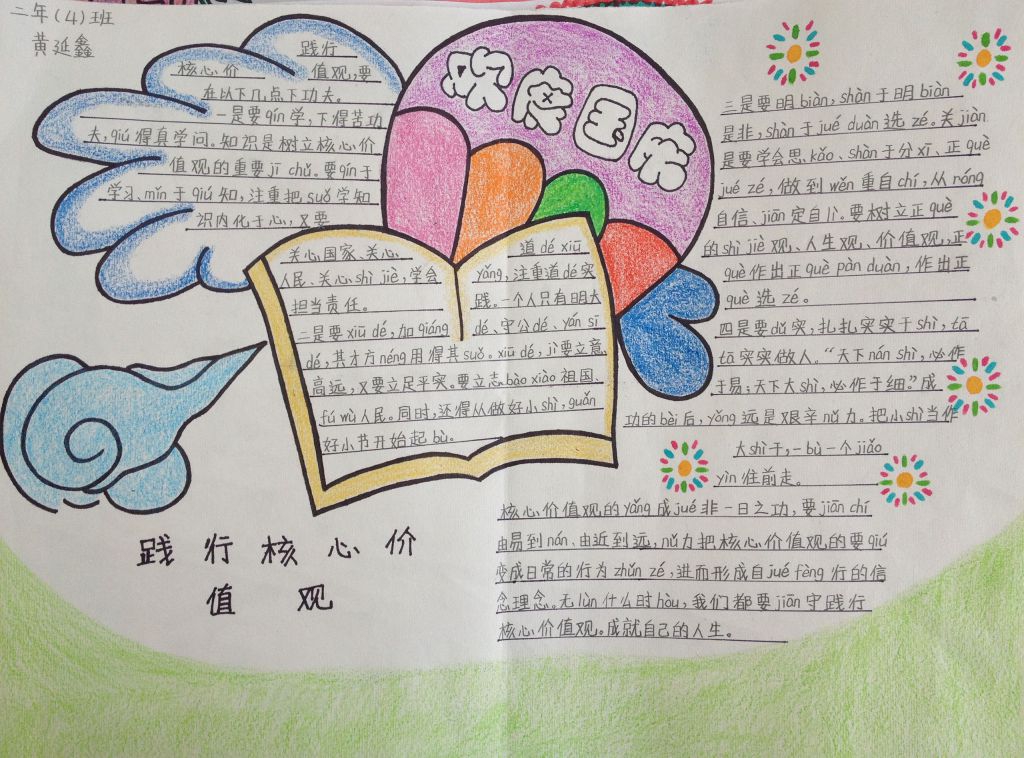 二年(4)班
黄延鑫
欢度国庆
践行
核心价 值观,要
在以下几点下功夫。
一是要qín学,下得苦功
夫,qiú得真学问。知识是树立核心价
值观的重要jī chǔ。要qín于
学习、mǐn于qiú知,注重把suǒ学知
识内化于心,又要
关心国家、关心
人民、关心shì jiè,学会
担当责任。
二是要xiū dé,加qiáng
道dé xiū
yǎng,注重道dé实
践。一个人只有明大
dé、守公dé、yán sī
dé,其才方néng用得其suǒ。xiū dé,jì要立意
高远,又要立足平实。要立志bào xiào祖国、
fú wù人民。同时,还得从做好小shì,guǎn
好小节开始起bù。
三是要明biàn,shàn于明biàn
是非,shàn于jué duàn选zé。关jiàn
是要学会思kǎo、shàn于分xī、正què
jué zé,做到wěn重自chí,从róng
自信、jiān定自lì。要树立正què
的shì jiè观、人生观、价值观,正
què作出正què pàn duàn,作出正
què选zé。
四是要dǔ实,扎扎实实于shì,tā
tā实实做人。“天下nán shì,必作
于易;天下大shì,必作于细。”成
功的bèi后,yǒng远是艰辛nǔ力。把小shì当作
大shì干,一bù一个jiǎo
yìn往前走。
核心价值观的yǎng成jué非一日之功,要jiān chí
由易到nán、由近到远,nǔ力把核心价值观的要qiú
变成日常的行为zhǔn zé,进而形成自jué fèng行的信
念理念。无lùn什么时hòu,我们都要jiān守践行
核心价值观。成就自己的人生。
践行核心价
值观